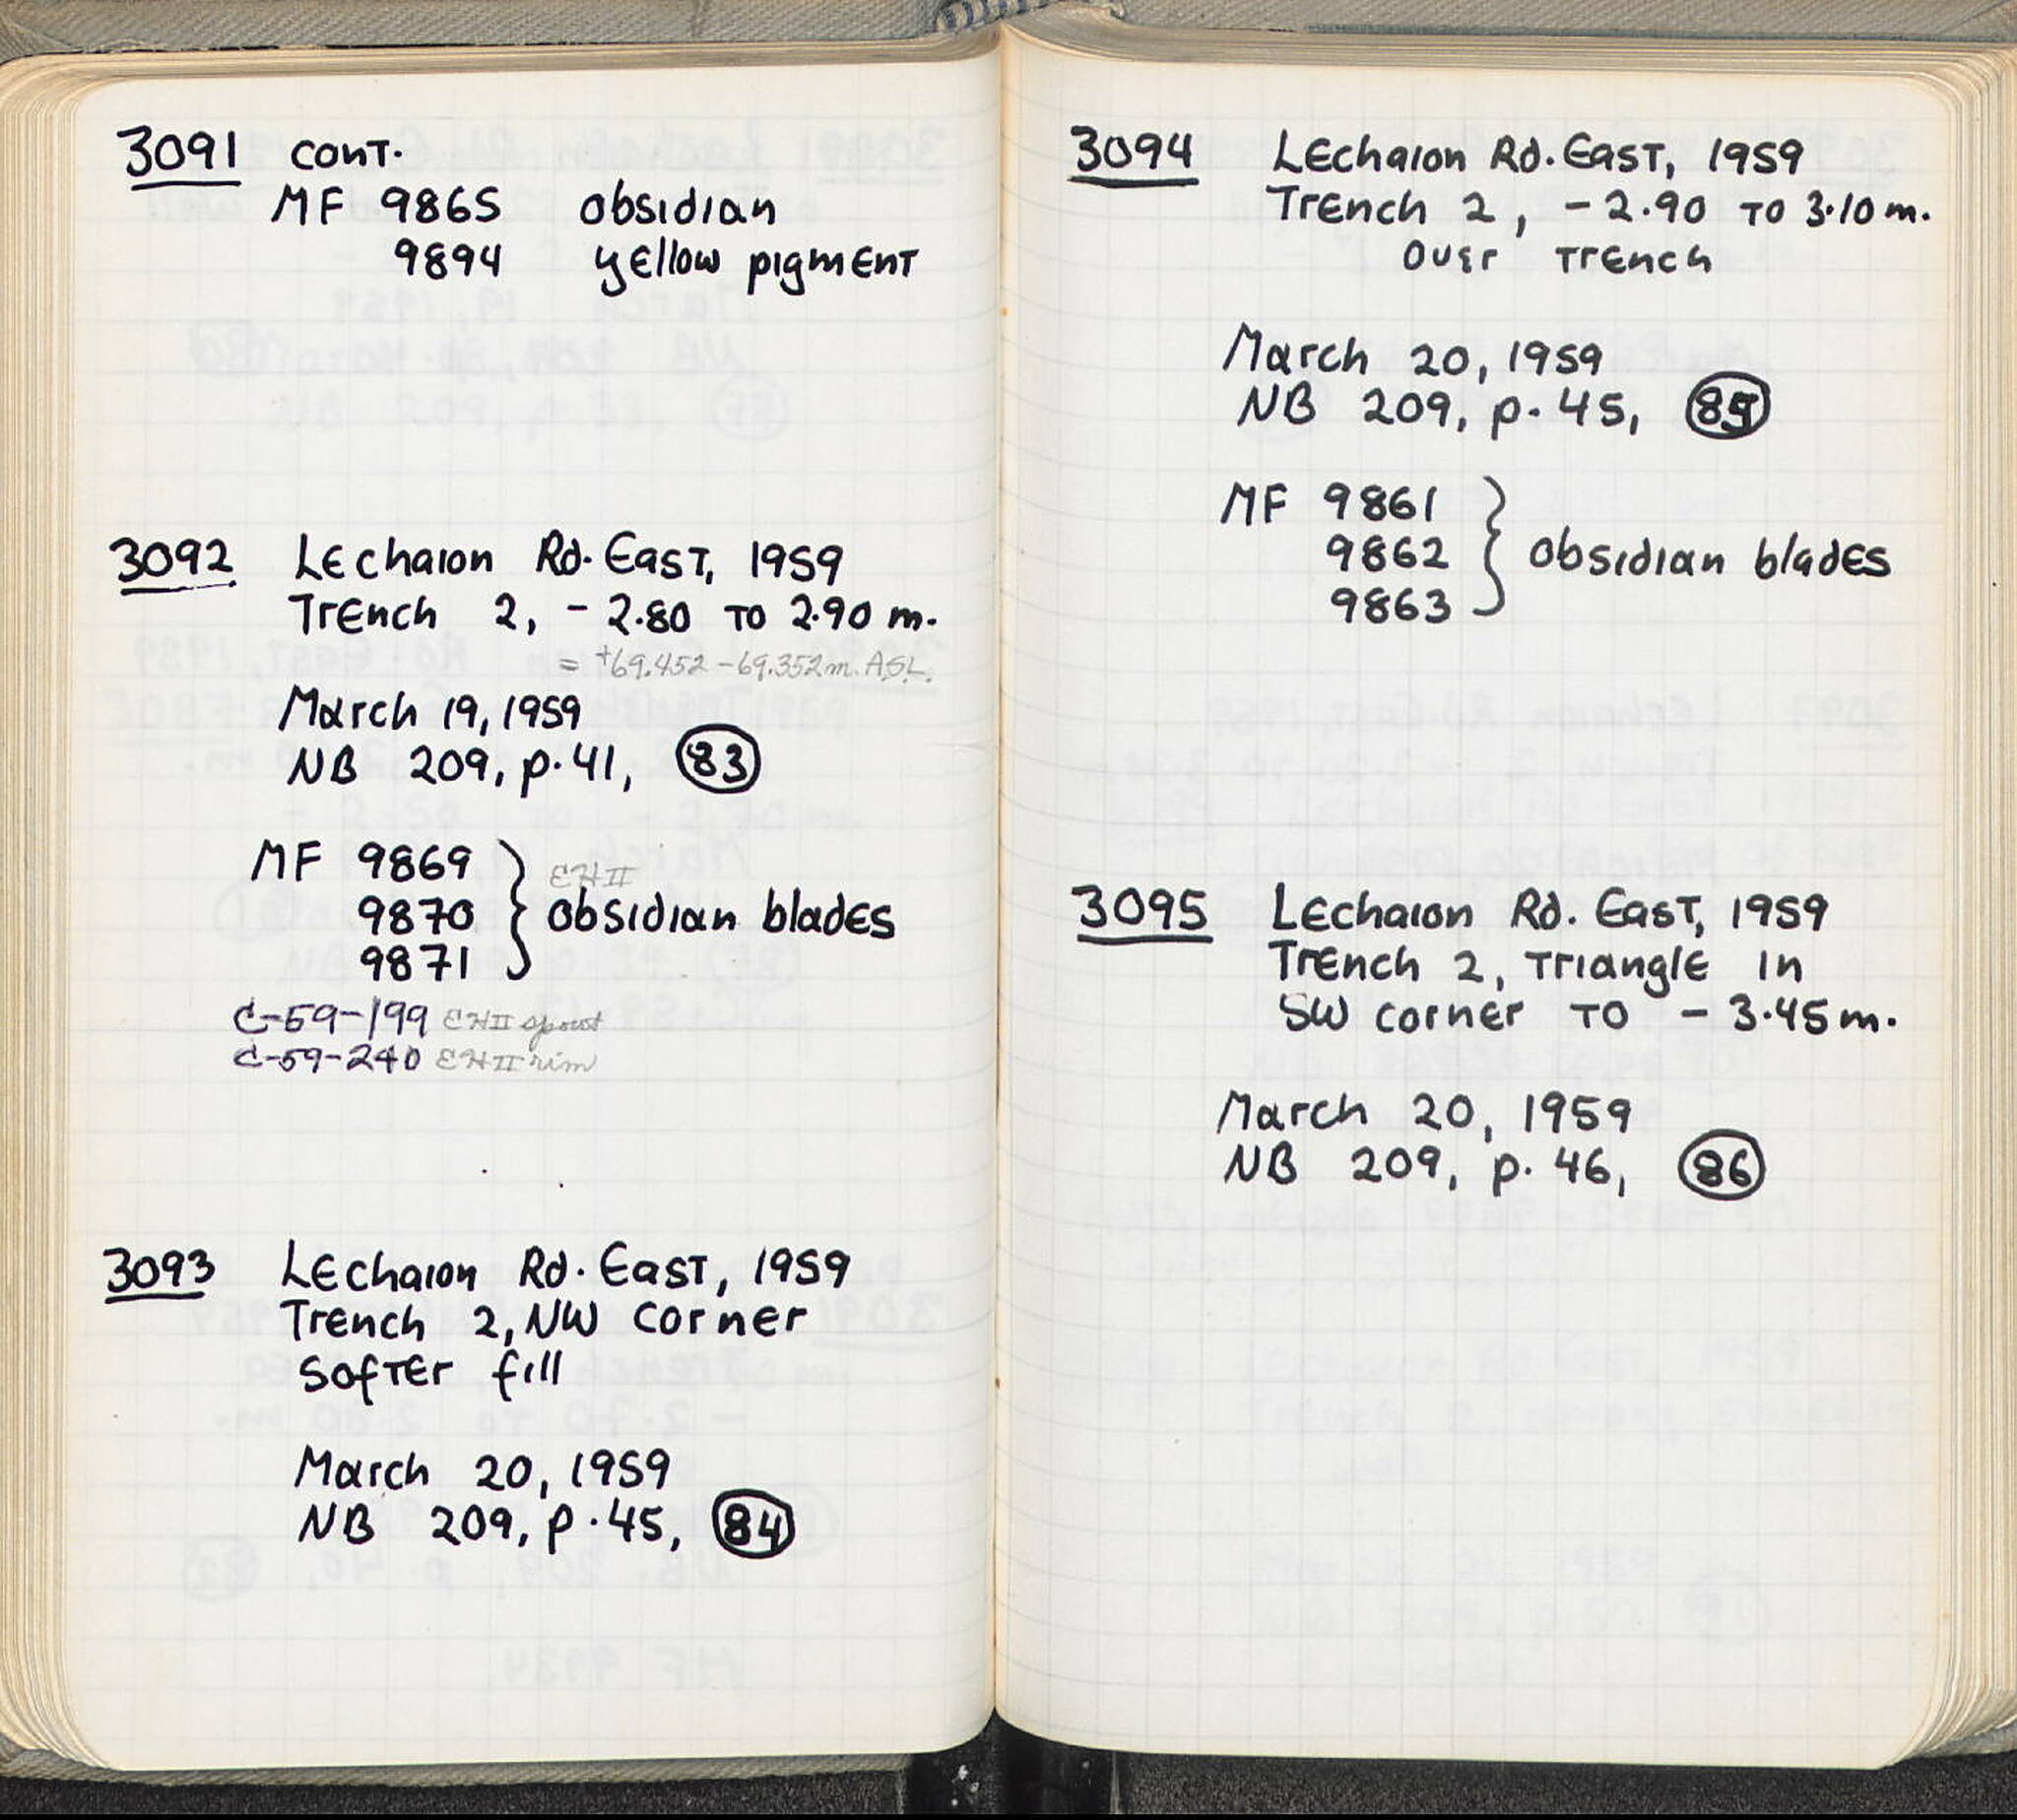 3091 cont.
MF 9865 obsidian
9894 yellow pigment
3092 Lechaion Rd. East, 1959
Trench 2, - 2.80 to 2.90 m.
= +69.452 - 69.352 m. A.S.L.
March 19, 1959
NB 209, p. 41, 83
MF 9869
EH II
9870 } obsidian blades
9871
C-59-199 EH II spout
C-59-240 EH II rim
3093 Lechaion Rd. East, 1959
Trench 2, NW corner
softer fill
March 20, 1959
NB 209, p. 45, 84
3094 Lechaion Rd. East, 1959
Trench 2, - 2.90 to 3.10 m.
over trench
March 20, 1959
NB 209, p. 45, 85
MF 9861
9862 } obsidian blades
9863
3095 Lechaion Rd. East, 1959
Trench 2, triangle in
SW corner to - 3.45 m.
March 20, 1959
NB 209, p. 46, 86